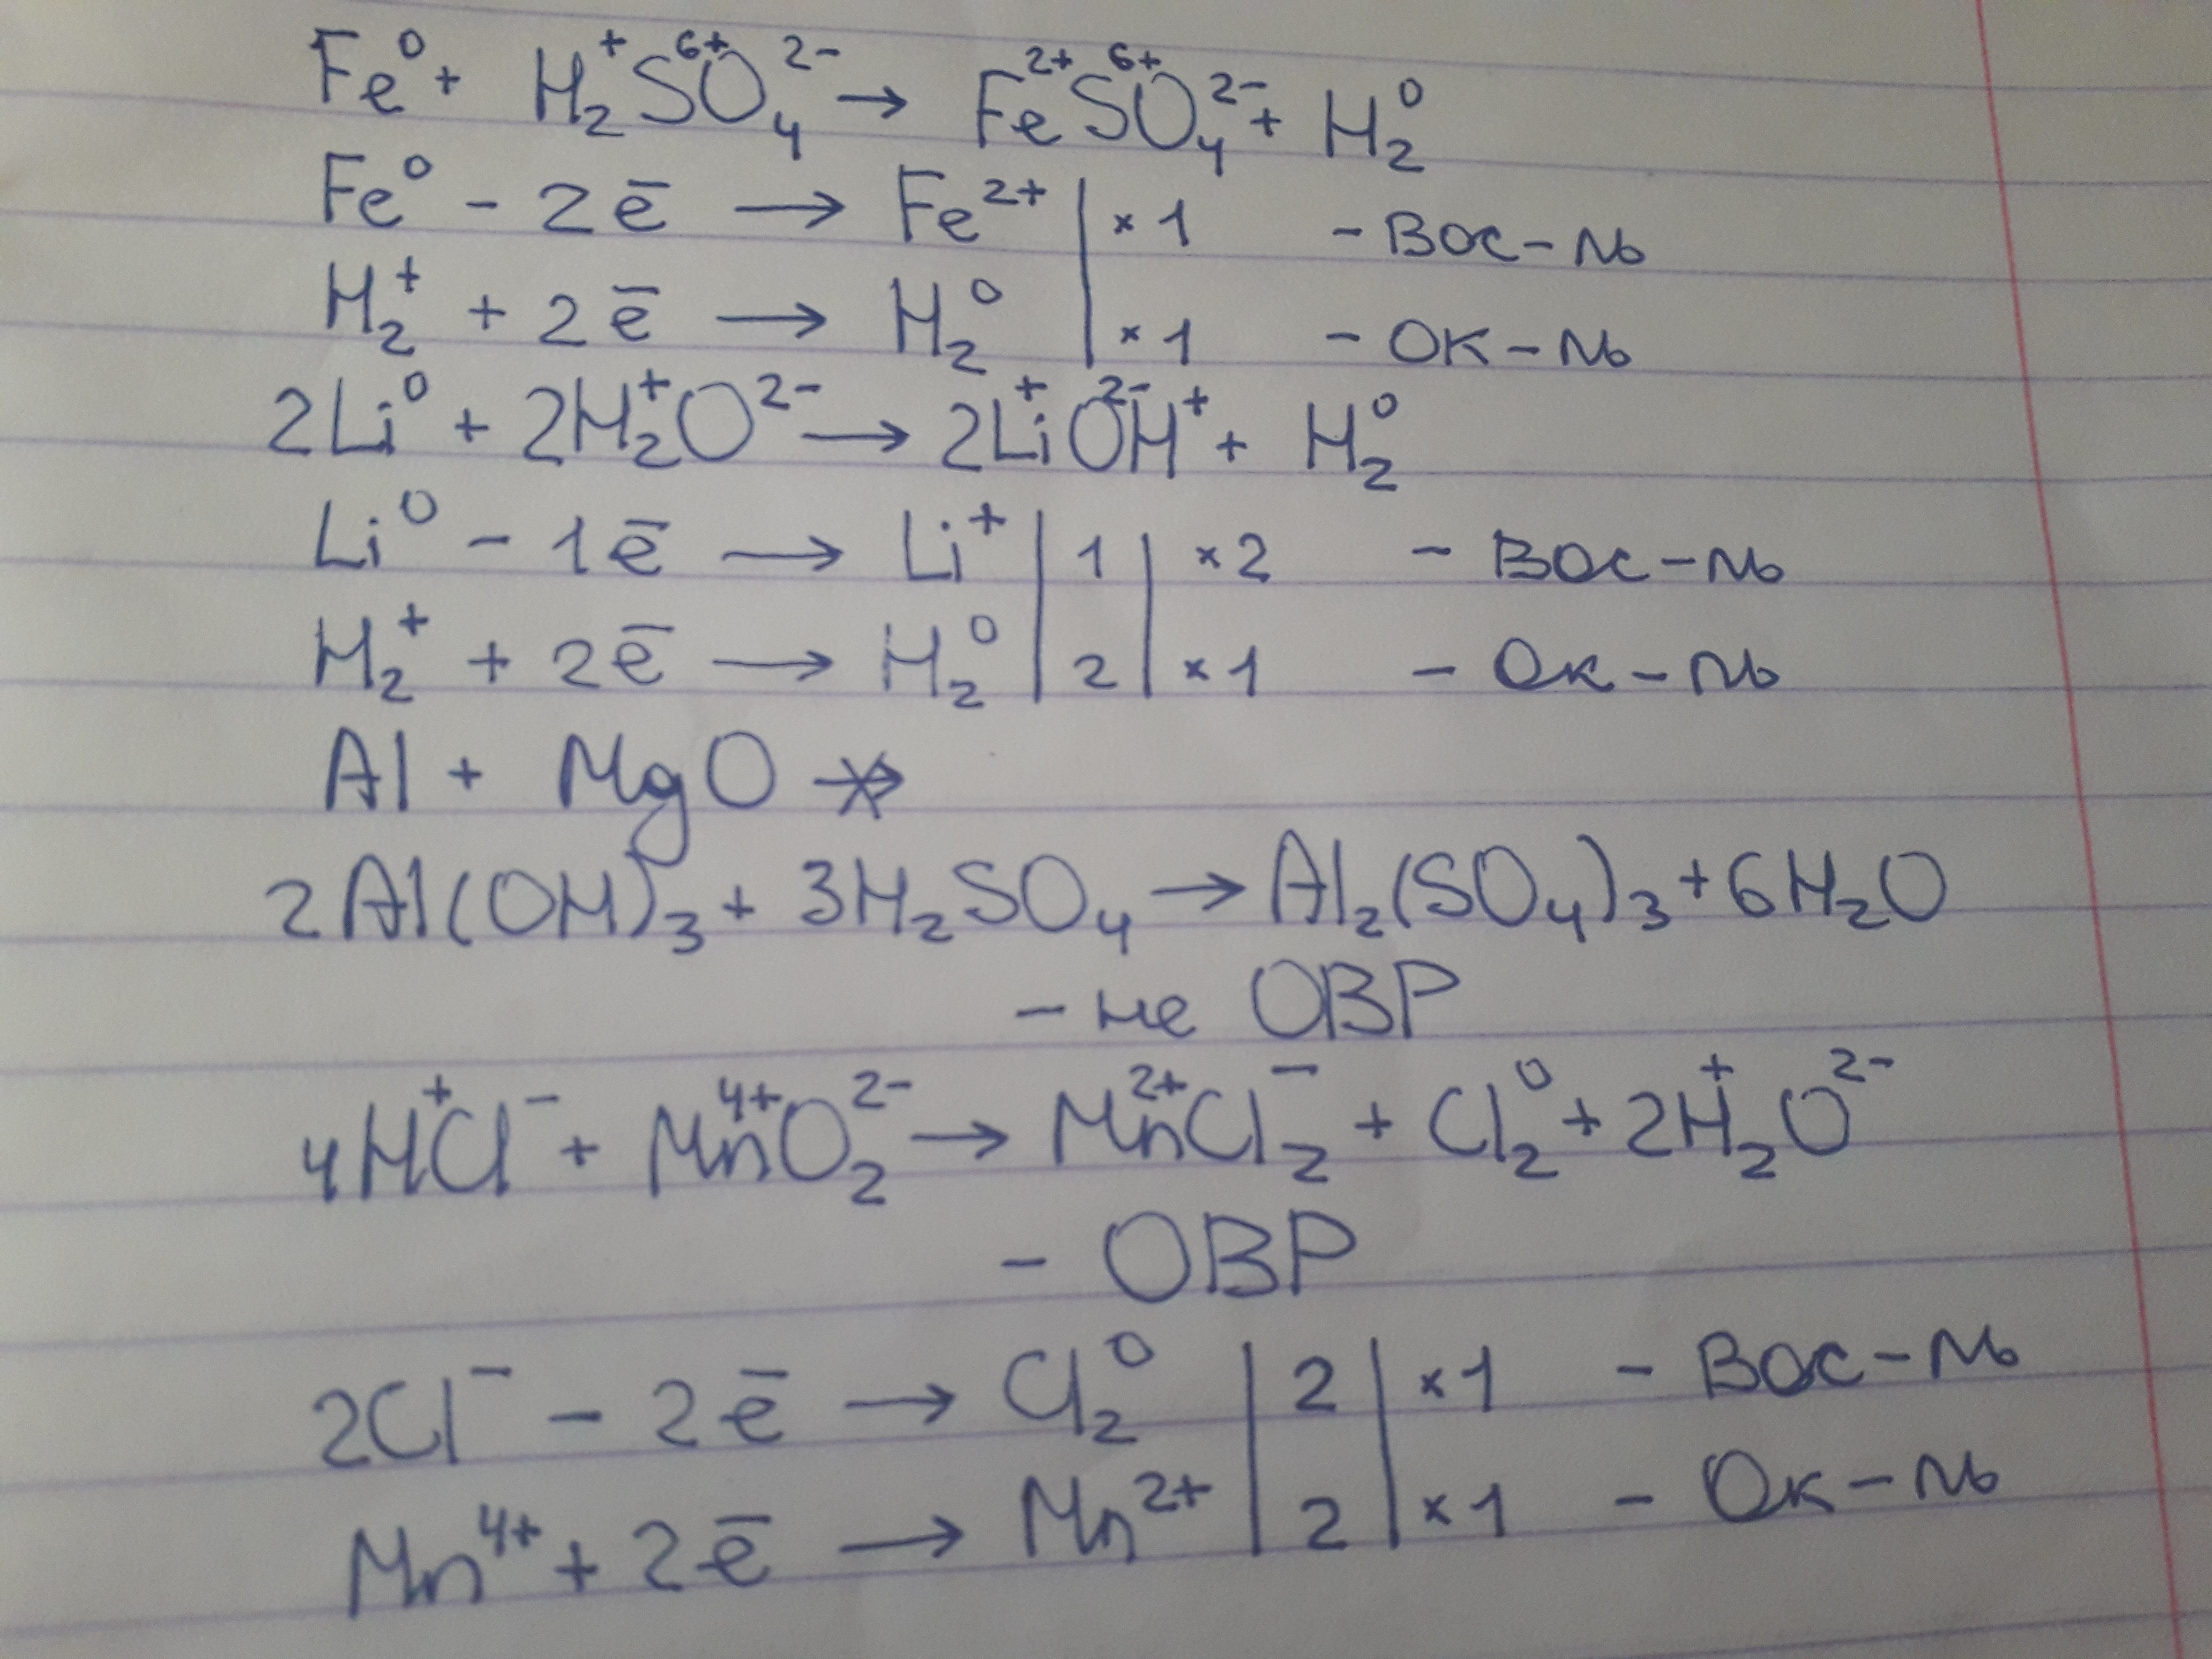 Fe⁰ + H₂⁺S⁶⁺O₄²⁻ → Fe²⁺S⁶⁺O₄²⁻ + H₂⁰
Fe⁰ - 2ē → Fe²⁺ | × 1 - Вос-ль
H₂⁺ + 2ē → H₂⁰ | × 1 - Ок-ль
2Li⁰ + 2H₂⁺O²⁻ → 2Li⁺O²⁻H⁺ + H₂⁰
Li⁰ - 1ē → Li⁺ | 1 | × 2 - Вос-ль
H₂⁺ + 2ē → H₂⁰ | 2 | × 1 - Ок-ль
Al + MgO ↛
2Al(OH)₃ + 3H₂SO₄ → Al₂(SO₄)₃ + 6H₂O
- не ОВР
4H⁺Cl⁻ + Mn⁴⁺O₂²⁻ → Mn²⁺Cl₂⁻ + Cl₂⁰ + 2H₂⁺O²⁻
- ОВР
2Cl⁻ - 2ē → Cl₂⁰ | 2 | × 1 - Вос-ль
Mn⁴⁺ + 2ē → Mn²⁺ | 2 | × 1 - Ок-ль